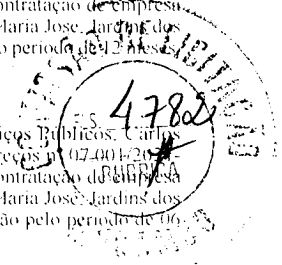 contratação de empresa
Maria Jose, Jardins dos
o período de 12 meses
LICITAÇÃO
FLS.
4782
iços Públicos, Carlos
reços nº 07-001/20
RUBRICA
ontratação de empresa
Maria José, Jardins dos
ão pelo período de 06